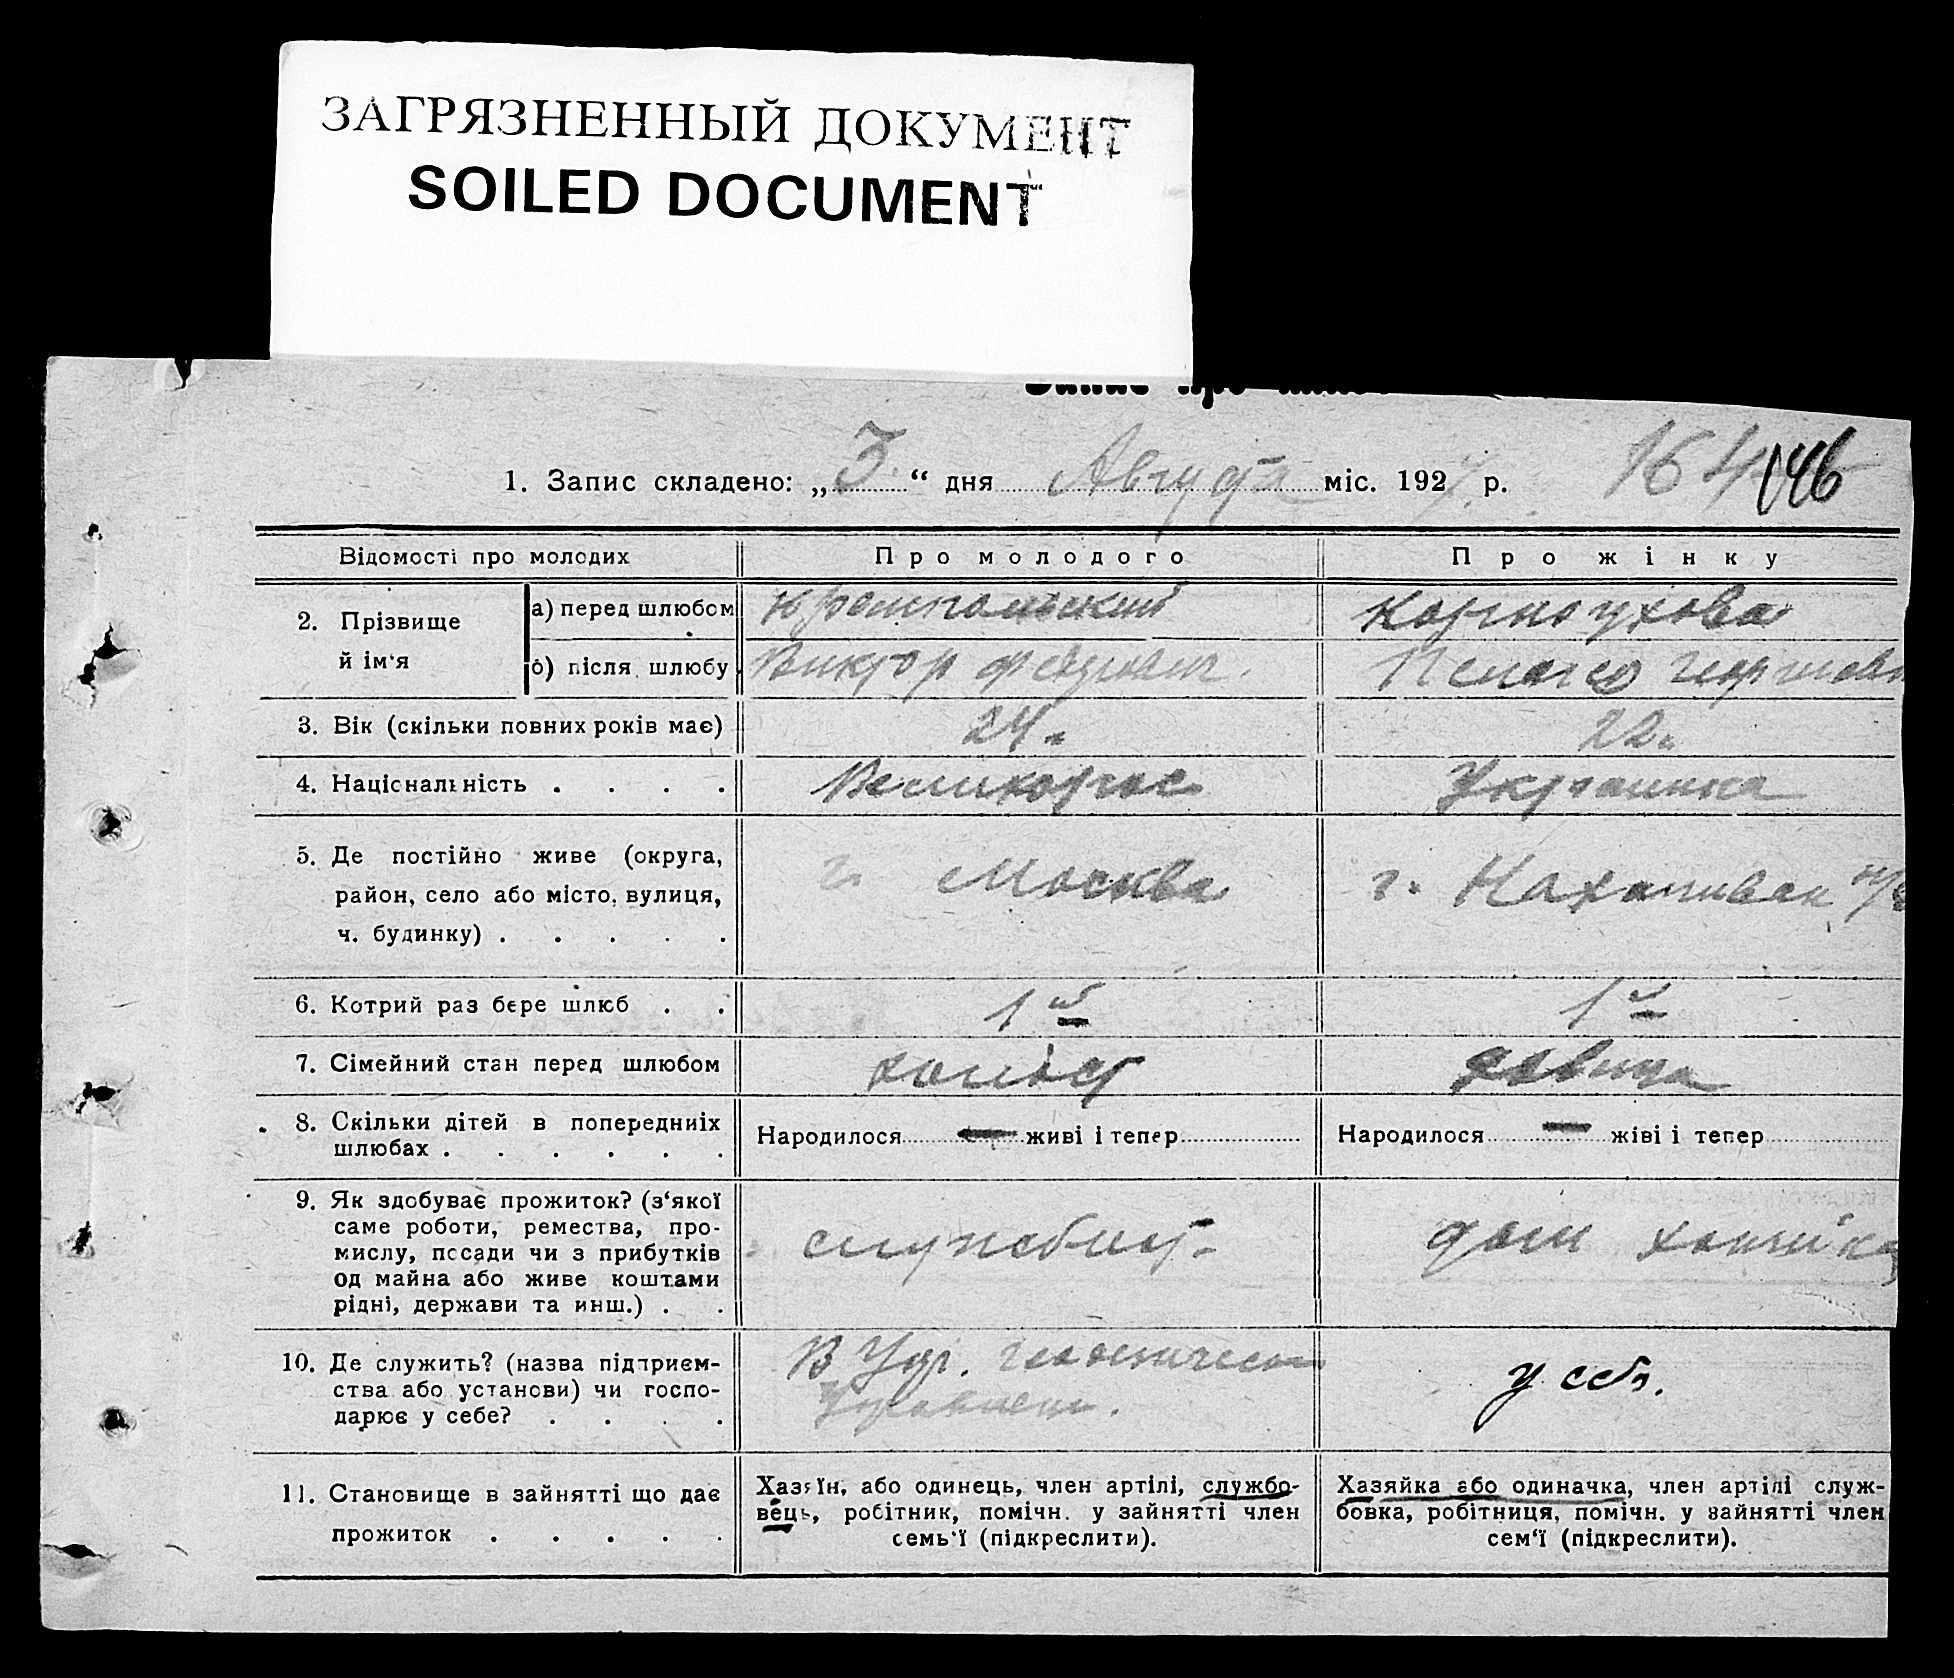 ЗАГРЯЗНЕННЫЙ ДОКУМЕНТ
SOILED DOCUMENT
1. Запис складено: „3“ дня Августа міс. 1927 р.
164 146
Відомості про молодих
Про молодого
Про жінку
2. Прізвище й ім‘я
а) перед шлюбом
Корноухова
б) після шлюбу
Виктор
Пелагея Георгиевн
3. Вік (скільки повних років має)
24.
22.
4. Національність . . . .
Великорос
Украинка
5. Де постійно живе (округа,
район, село або місто, вулиця,
ч. будинку) . . . . .
г. Москва
г. Нахичевань н/Д
6. Котрий раз бере шлюб . .
1й
1й
7. Сімейний стан перед шлюбом
холост
девица
8. Скільки дітей в попередниіх
шлюбах . . . . . .
Народилося — живі і тепер
Народилося — жіві і тепер
9. Як здобуває прожиток? (з‘якої
саме роботи, ремества, про-
мислу, посади чи з прибутків
од майна або живе коштами
рідні, держави та инш.) . .
службист.
дом хозяйка
10. Де служить? (назва підприєм-
ства або установи) чи госпо-
дарює у себе? . . . .
В Укр. геодезическом
Управлении.
у себя.
11. Становище в зайнятті що дає
прожиток . . . . .
Хазяїн, або одинець, член артілі, службо-
вець, робітник, помічн. у зайнятті член
семь‘ї (підкреслити).
Хазяйка або одиначка, член артілі служ-
бовка, робітниця, помічн. у зайнятті член
сем‘ї (підкреслити).